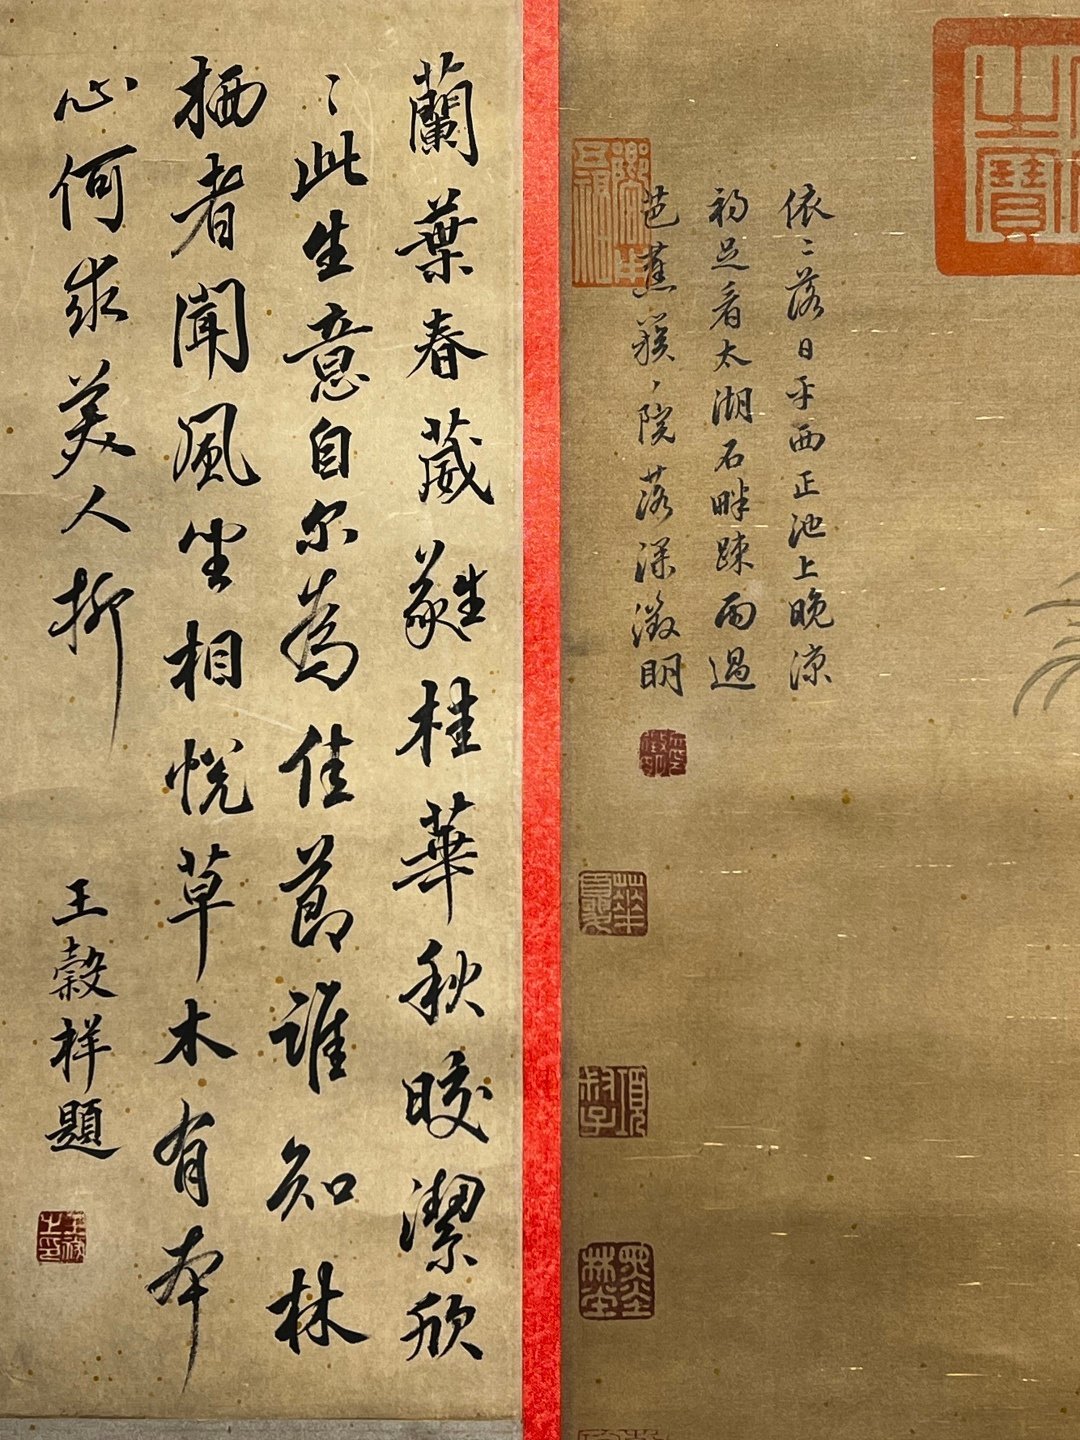 之寶
依〻落日平西正池上晚涼
初足看太湖石畔踈雨過
芭蕉簇〻院落深徵明
項叔子
蘭葉春葳蕤桂華秋晈潔欣
〻此生意自尔為佳節誰知林
栖者聞風坐相悅草木有本
心何求美人折
王穀祥題